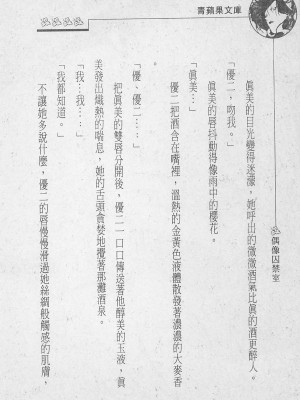 青蘋果文庫
偶像囚禁室
真美的目光變得迷濛,她呼出的微微酒氣比真的酒更醉人。
「優二,吻我。」
真美的唇抖動得像雨中的櫻花。
「真美…」
優二把酒含在嘴裡,溫熱的金黃色液體散發著濃濃的大麥香
。
「優、優二……」
把真美的雙唇分開後,優二一口口傳送著他醇美的玉液,真
美發出熾熱的喘息,她的舌頭貪婪地攪著那灘酒泉。
「我…我…」
「我都知道。」
不讓她多說什麼,優二的唇慢慢滑過她絲綢般觸感的肌膚,